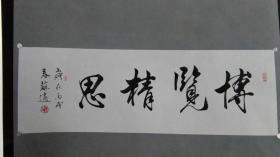 博覽精思
歲在丙戌